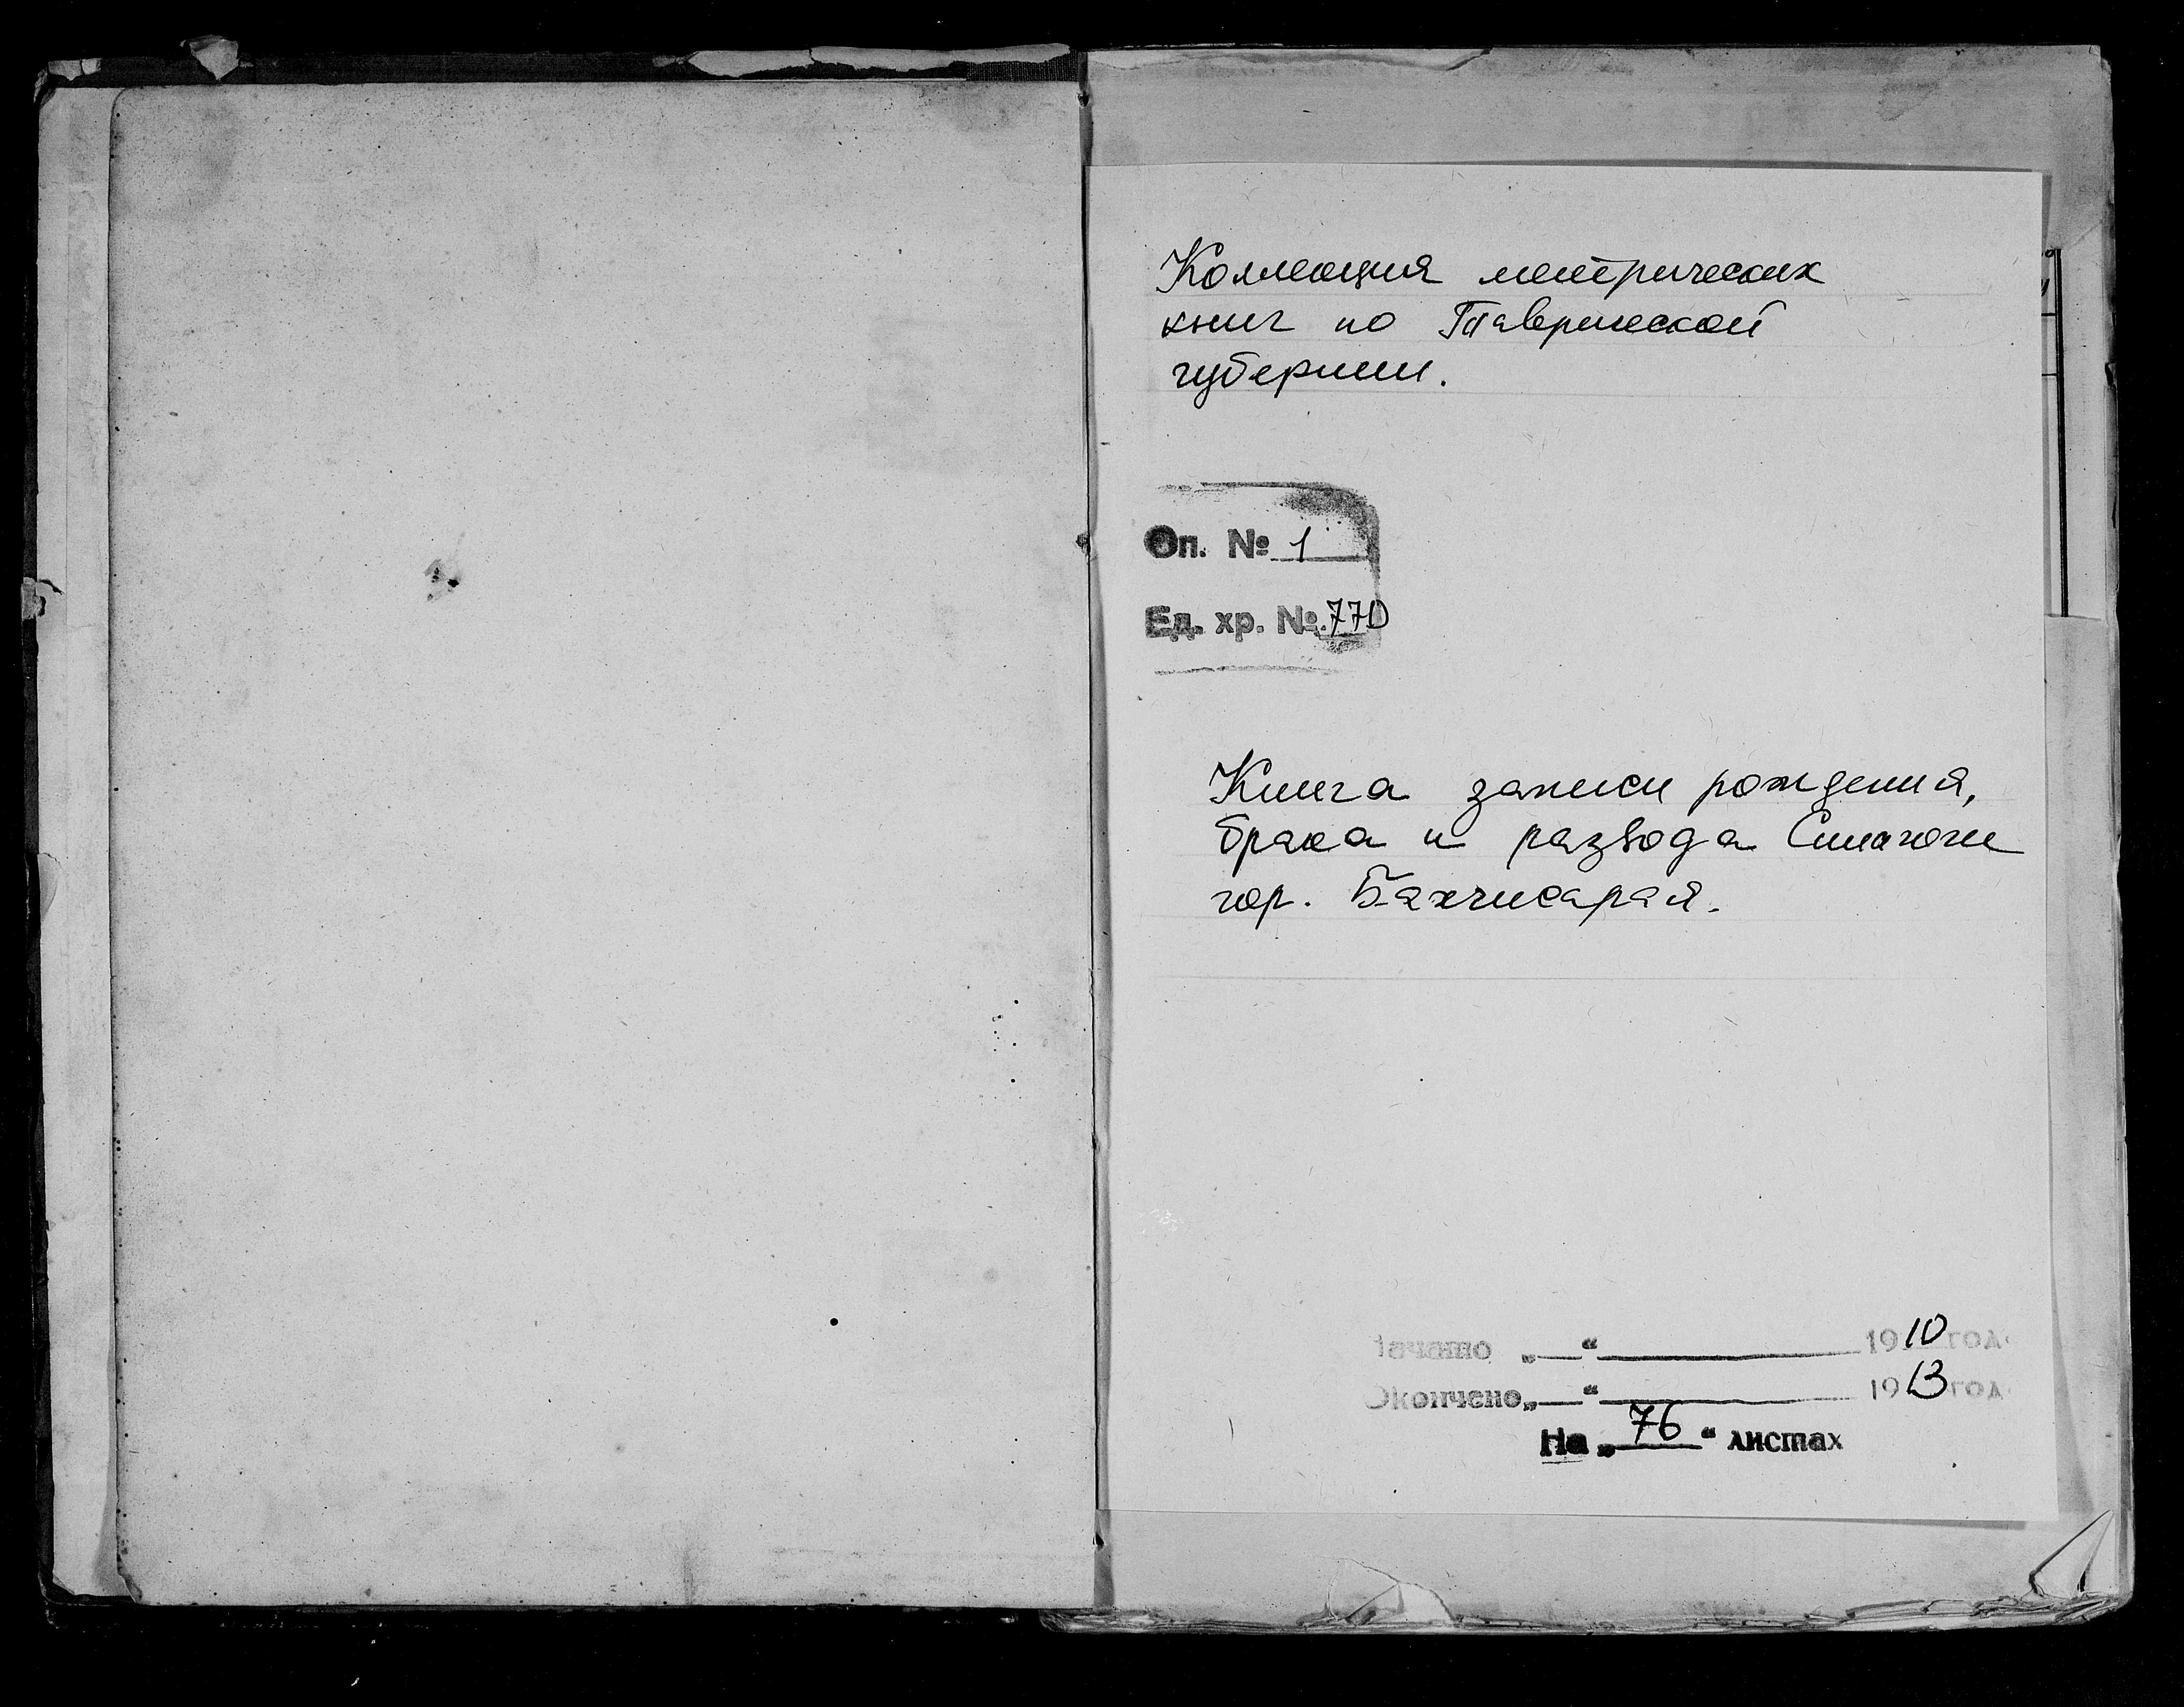 Коллекция метрических
книг по Таврической
губернии.
Оп. № 1
Ед. хр. № 770
Книга записи рождения,
брака и развода Синагоги
гор. Бахчисарая.
Начато „__“ 1910 год
Окончено „__“ 1913 год
На „76“ листах